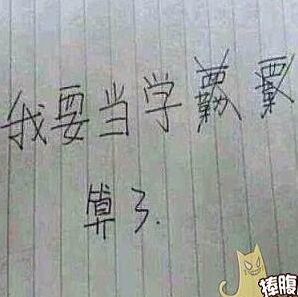 我要当学
算了.
捧腹